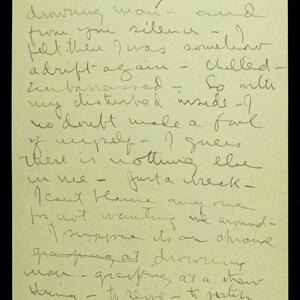 drowning man - and
from your silence - I
felt then I was somehow
adrift again - chilled -
embarrassed - So with
my disturbed inside - I
no doubt made a fool
of myself - I guess
there is nothing else
in me - Just a wreck -
I cant blame any one
for not wanting me around -
I suppose its an
grasping at drowning
man - grasping at a straw
thing - to